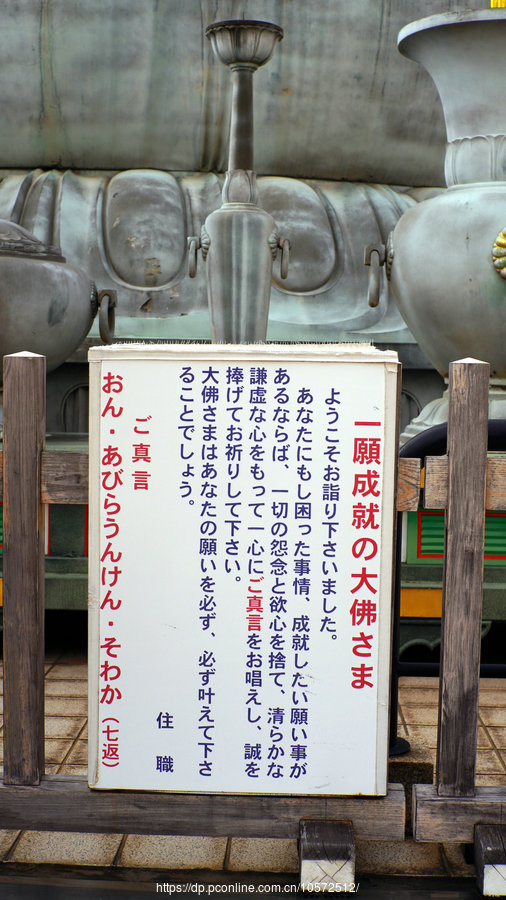 一願成就の大佛さま
ようこそお詣り下さいました。
あなたにもし困った事情、成就したい願い事が
あるならば、一切の怨念と欲心を捨て、清らかな
謙虚な心をもって一心にご真言をお唱えし、誠を
捧げてお祈りして下さい。
大佛さまはあなたの願いを必ず、必ず叶えて下さ
ることでしょう。
住職
ご真言
おん・あびらうんけん・そわか（七返）
https://dp.pconline.com.cn/10572512/